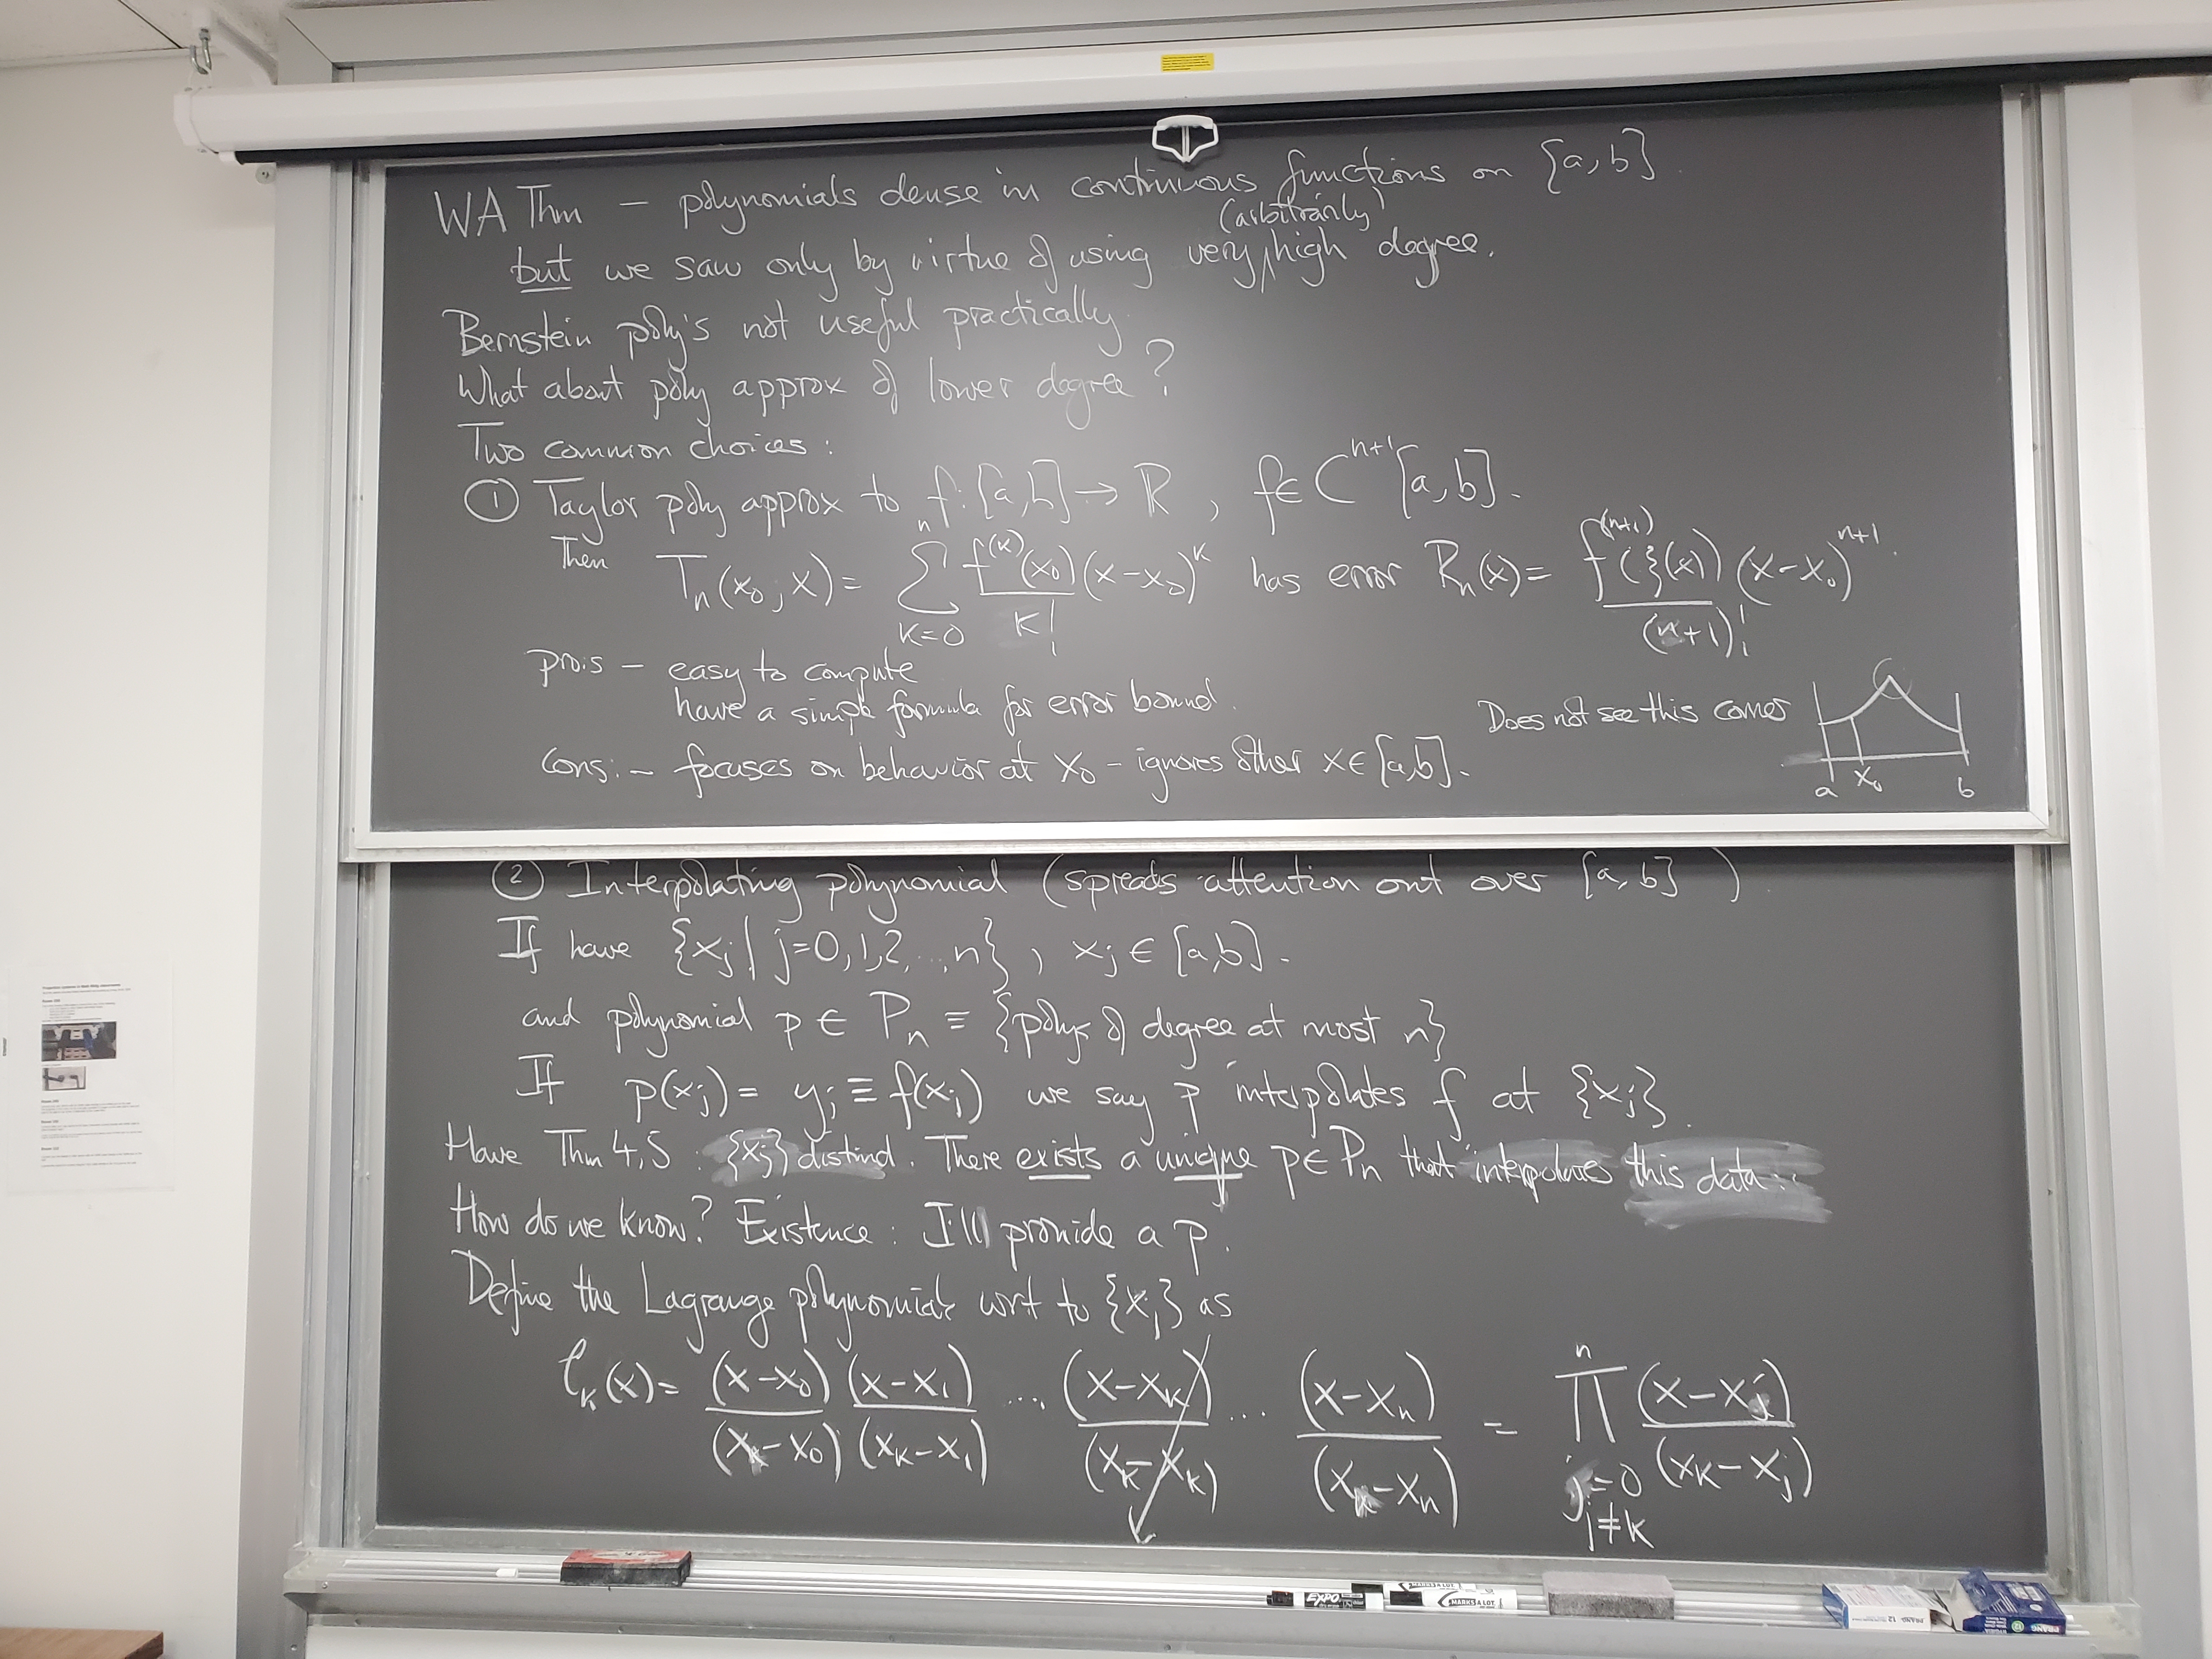 WA Thm — polynomials dense in continuous functions on [a,b].
(arbitrarily)
but we saw only by virtue of using very high degree.
Bernstein poly's not useful practically.
What about poly approx of lower degree?
Two common choices:
① Taylor poly approx to f:[a,b]→ℝ, f∈C^{n+1}[a,b].
Then T_n(x_0;x) = \sum_{k=0}^{n} \frac{f^{(k)}(x_0)}{k!}(x-x_0)^k has error R_n(x) = \frac{f^{(n+1)}(ξ(x))}{(n+1)!}(x-x_0)^{n+1}.
pro's — easy to compute
have a simple formula for error bound.
Does not see this corner
Cons: — focuses on behavior at x_0 – ignores other x∈[a,b].
a x_0 b
② Interpolating polynomial (spreads attention out over [a,b])
If have {x_j | j=0,1,2,...,n}, x_j ∈ [a,b].
and polynomial p ∈ P_n ≡ {polys of degree at most n}
If p(x_j) = y_j ≡ f(x_j) we say p interpolates f at {x_j}.
Have Thm 4,5: {x_j} distinct. There exists a unique p∈P_n that interpolates this data.
How do we know? Existence: I'll provide a p.
Define the Lagrange polynomials wrt to {x_j} as
ℓ_k(x) = \frac{(x-x_0)}{(x_k-x_0)} \frac{(x-x_1)}{(x_k-x_1)} ... \frac{(x-x_k)}{(x_k-x_k)} ... \frac{(x-x_n)}{(x_k-x_n)} = \prod_{j=0, j≠k}^{n} \frac{(x-x_j)}{(x_k-x_j)}
EXPO
MARKS A LOT
PRANG